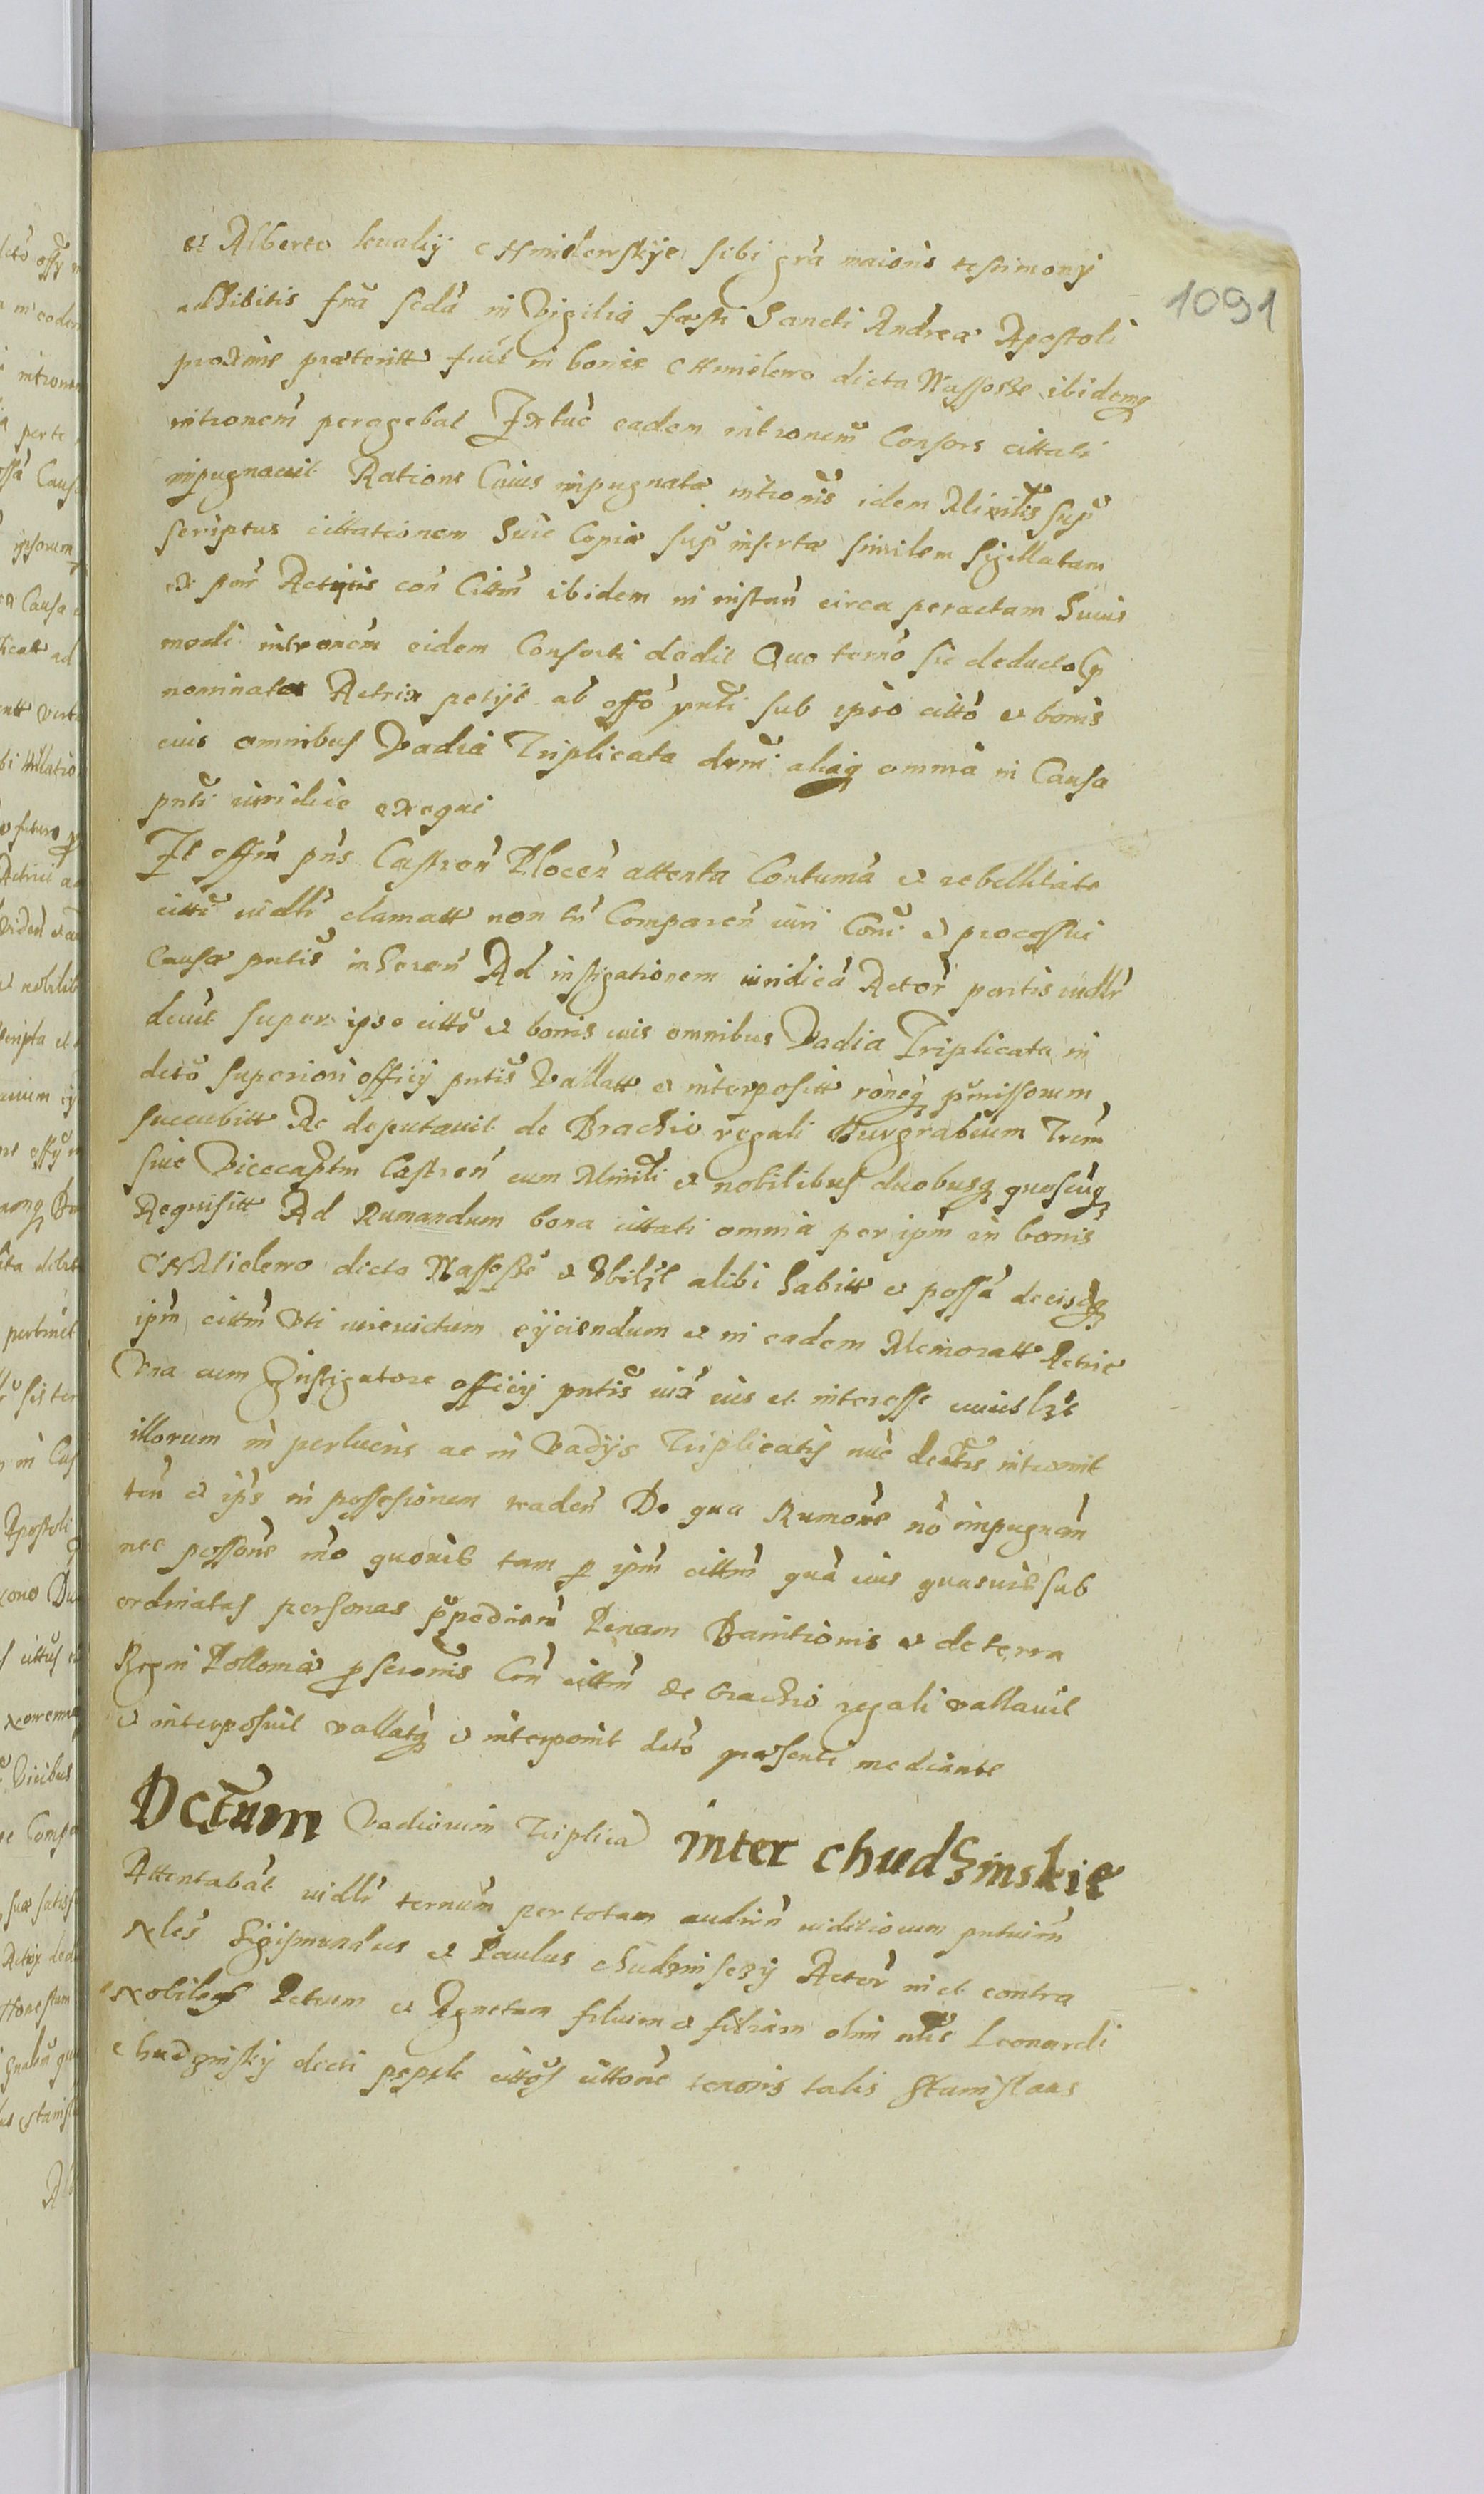 1091
et Alberto Kowalÿ CHmielewskÿe sibi gra maioris testimony
adhibitis fria scda in Vigilia festi Sancti Andreæ Apostoli
proxime præteritt fuit in bonis CHmielewo dicta Nassosze ibidemq
intronem peragebat Extuc eadem intronem Consors cittati
inpugnauit Ratione Cuius inpugnatæ intronis idem Minilis sup
scriptus cittationem Suic Copiæ sup insertæ similem Sigellatam
ex pan Actricis con Cittm ibidem in instan circa peractam Suius
modi intronem eidem Consorti dedit Quo termo sic deducto sp
nominata Actrix petÿt ab offo pnti sub ipso citto et bonis
eius omnibus Vadia Triplicata decni aliaq omnia in Causa
pnti iuridice exequi
Et offm pns Castren Plocen attenta Contuma et rebellitate
citti iudlr clamatt non tn Comparen iuri Coni et processui
Causæ pntis inheren Ad instigationem iuridica Actor partis iudlr
deuit super ipso citto et bonis eius omnibus Vadia Triplicata in
deto superiori officÿ pntis Vallatt et interpositt roneq pmissorum
succubitt Ac deputauit de Brachio regali Burgrabium Trem
siue Vicecaptm Castren cum Minili et nobilibus duobusq quoscuq
Requisitt Ad Rumandum bona cittati omnia per ipm in bonis
CHMielewo dicta Nassosze et Vbilzt alibi habitt et possa deeisdq
ipm cittm Vti iureuictum eÿciendum et in eadem Memoratt Actric
Vna cum Instigatore officÿ pntis iuxa eius et interesse cuiuslzt
illorum in perlucris ac in Vadÿs Triplicatis nuc decretis intromit
ten et ips in possesionem traden De qua Rumone no impugnan
nec possone mo quouis tam p ipm cittm qua eius quasuis sub
ordinatas personas ppedien Penam Banitionis et de terra
Regni Polloniæ pscronis Con cittm de brachio regali vallauit
et interposuit vallatq et interponit deto præsenti mediante
Dctum Vadiorum Triplica inter chudzinskie
Attentabat iudlr ternum per totam audien iudiciorum pntium
Nles Sigismundus et Paulus chudzinsczÿ Actor in et contra
Nobiles Petrum et Agnetam filium et filiam olim nlis Leonardi
chudzinskÿ dicti pepek cittos cittone tenoris talis Stanislaus